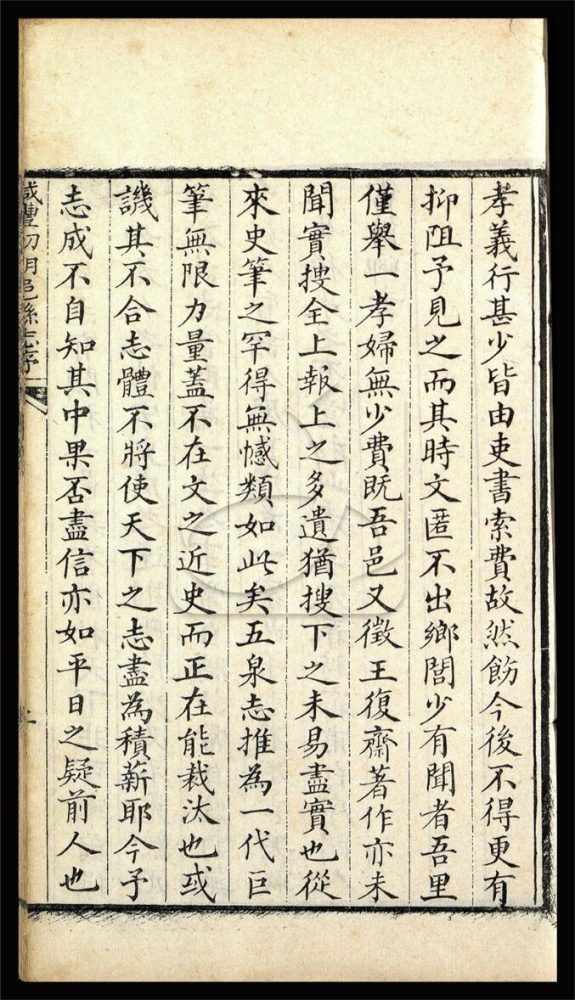 孝義行甚少皆由吏書索費故然飭今後不得更有
抑阻予見之而其時文匿不出鄉閭少有聞者吾里
僅舉一孝婦無少費既吾邑又徵王復齋著作亦未
聞實搜全上報上之多遺猶搜下之未易盡實也從
來史筆之罕得無憾類如此矣五泉志推為一代巨
筆無限力量蓋不在文之近史而正在能裁汰也或
譏其不合志體不將使天下之志盡為積薪耶今予
志成不自知其中果否盡信亦如平日之疑前人也
咸豐初朝邑縣志序